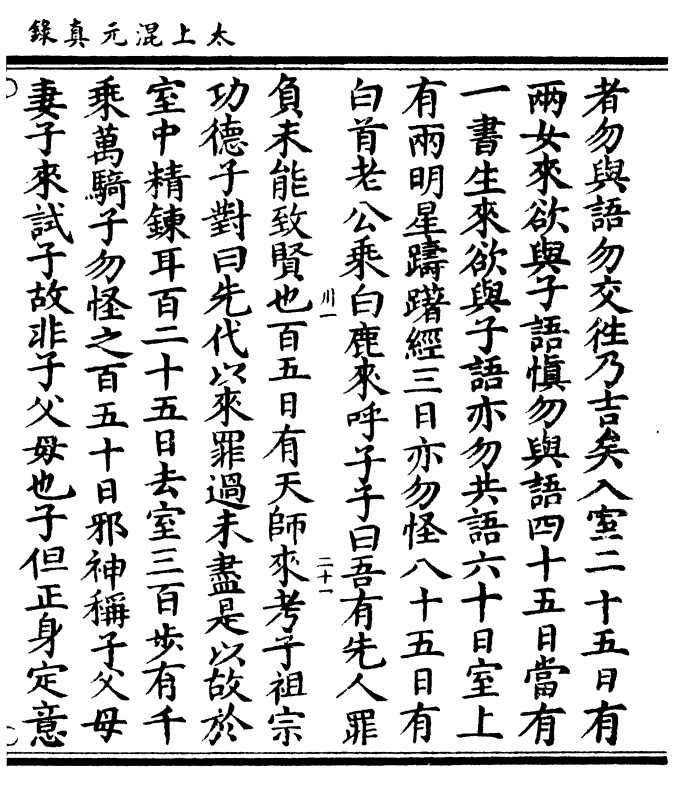 太上混元真錄
者勿與語勿交往乃吉矣入室二十五日有
兩女來欲與子語慎勿與語四十五日當有
一書生來欲與子語亦勿共語六十日室上
有兩明星躊躇經三日亦勿怪八十五日有
白首老公乘白鹿來呼子子曰吾有先人罪
川一
二十一
負未能致賢也百五日有天師來考子祖宗
功德子對曰先代以來罪過未盡是以故於
室中精鍊耳百二十五日去室三百步有千
乘萬騎子勿怪之百五十日邪神稱子父母
妻子來試子故非子父母也子但正身定意